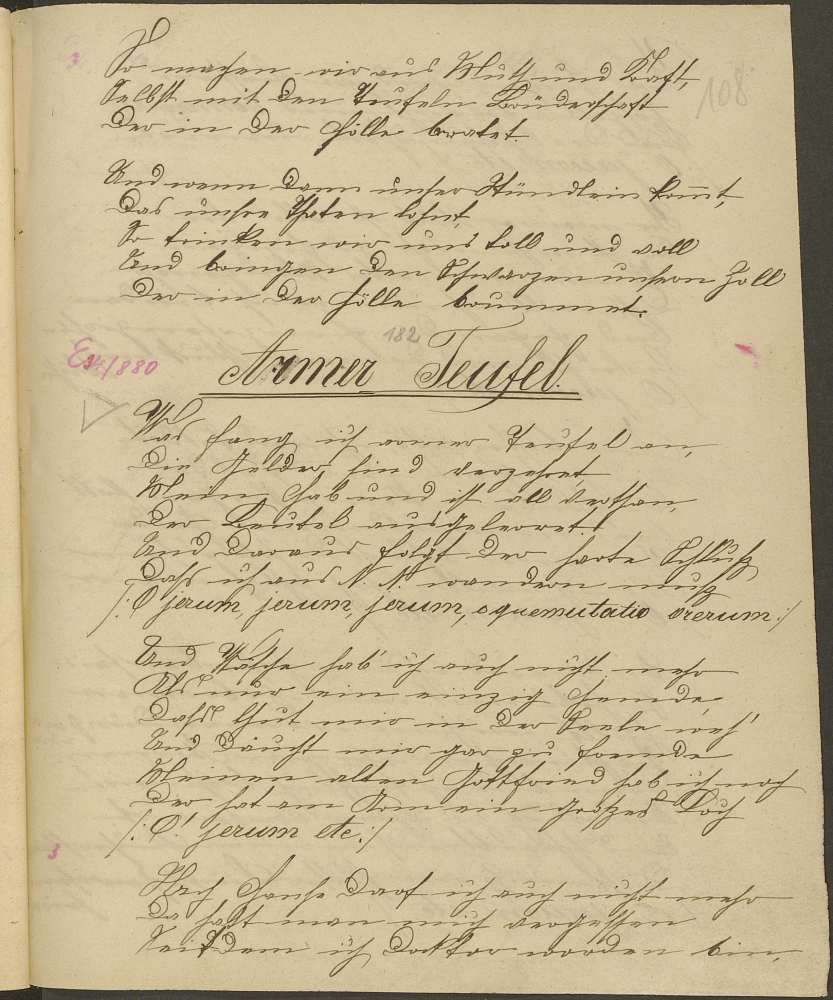 108
3
So machen wir aus Muth und Kraft,
Selbst mit den Teufeln Brüderschaft
Der in der Hölle bratet.
Und wenn dann unser Stündlein kom̅t,
Das unsre Thaten lohnt,
So trinken wir uns toll und voll
Und bringen den Schwarzen unsern Zoll
Der in der Hölle brummet.
182
/880
Armer Teufel.
Was fang ich armer Teufel an,
Die Gelder sind verzehret
Mein Hab und ist all verthan,
Der Beutel ausgeleeret!
Und daraus folgt der harte Schluß
Dass ich aus N. N. wandern muß
/: O jerum, jerum, jerum, o quemutatio rerum :/
Und Wäsche hab' ich auch nicht mehr
Als nur ein einzig Hemde
Dass thut mir in der Seele weh'
Und däucht mir gar zu fremde
Meinen alten Gottfried hab ich noch
Der hat am Arm ein großes Loch
/: O! jerum etc :/
3
Nach Hause darf ich auch nicht mehr
Da hat man mich vergessen
Seitdem ich Doktor worden bin,